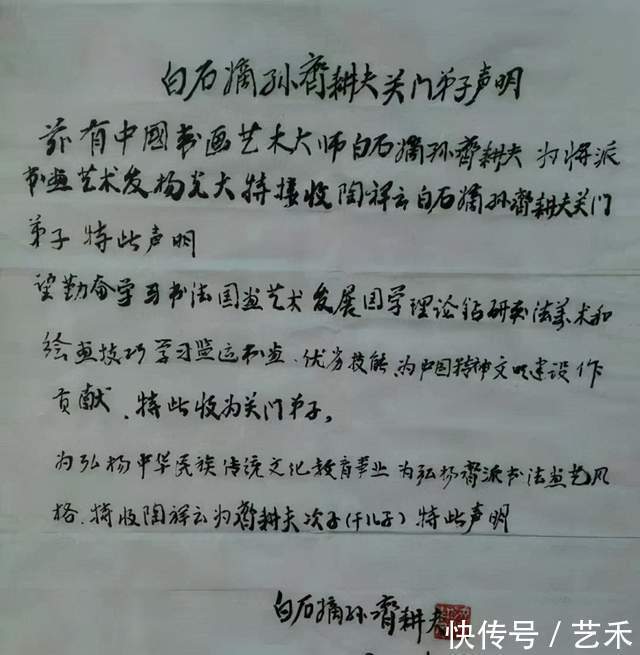 白石嫡孙齊耕夫关门弟子声明
兹有中國书画艺术大师白石嫡孙齊耕夫为将派
书画艺术发扬光大特接收陶祥云白石嫡孙齊耕夫关门
弟子特此声明
望勤奋学习书法国画艺术发展国学理论钻研书法美术和
绘画技巧学习鉴定书画、优秀技能、为中国精神文明建设作
贡献、特此收为关门弟子。
为弘扬中华民族传统文化教育事业为弘扬齊派书法画艺风
格、特收陶祥云为齊耕夫次子(干儿子)特此声明
白石嫡孙齊耕夫
快传号/艺禾